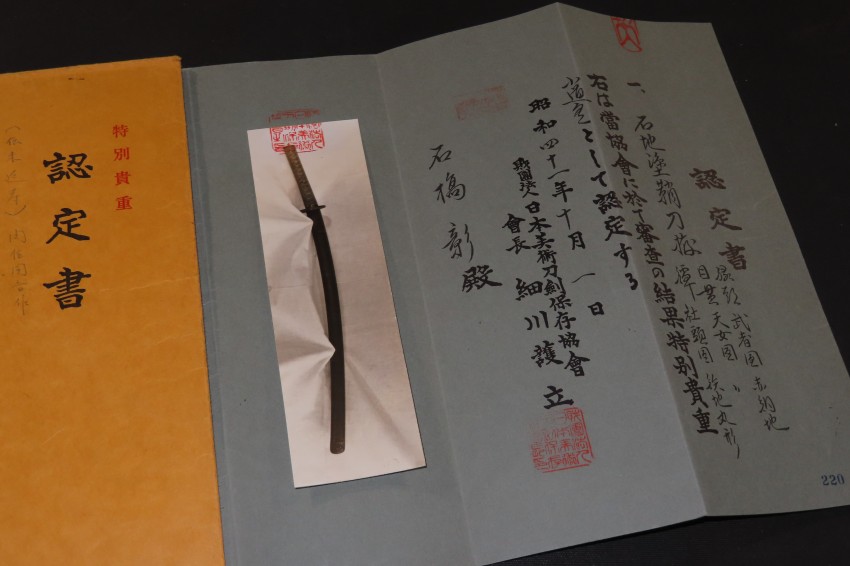 認定書
一、石地塗鞘刀拵
縁頭 武者図 赤銅地
目貫 天女図 〃
鐔 社頭図 鉄地丸形
右は當協會に於て審査の結果特別貴重
小道具として認定する
昭和四十一年十月一日
財團法人日本美術刀劍保存協會
會長 細川護立
石橋彰殿
220
特別貴重
認定書